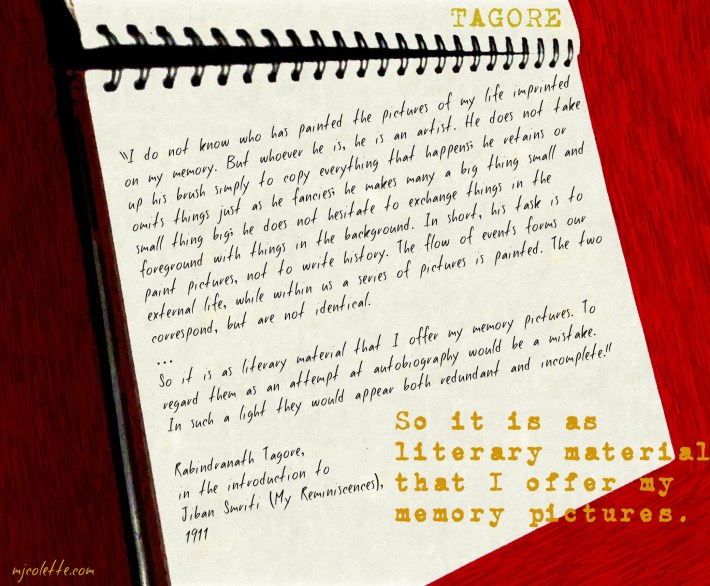 TAGORE
"I do not know who has painted the pictures of my life imprinted
on my memory. But whoever he is, he is an artist. He does not take
up his brush simply to copy everything that happens; he retains or
omits things just as he fancies; he makes many a big thing small and
small thing big; he does not hesitate to exchange things in the
foreground with things in the background. In short, his task is to
paint pictures, not to write history. The flow of events forms our
external life, while within us a series of pictures is painted. The two
correspond, but are not identical.
...
So it is as literary material that I offer my memory pictures. To
regard them as an attempt at autobiography would be a mistake.
In such a light they would appear both redundant and incomplete."
Rabindranath Tagore,
in the introduction to
Jiban Smriti (My Reminiscences),
1911
So it is as
literary material
that I offer my
memory pictures.
mjcolette.com